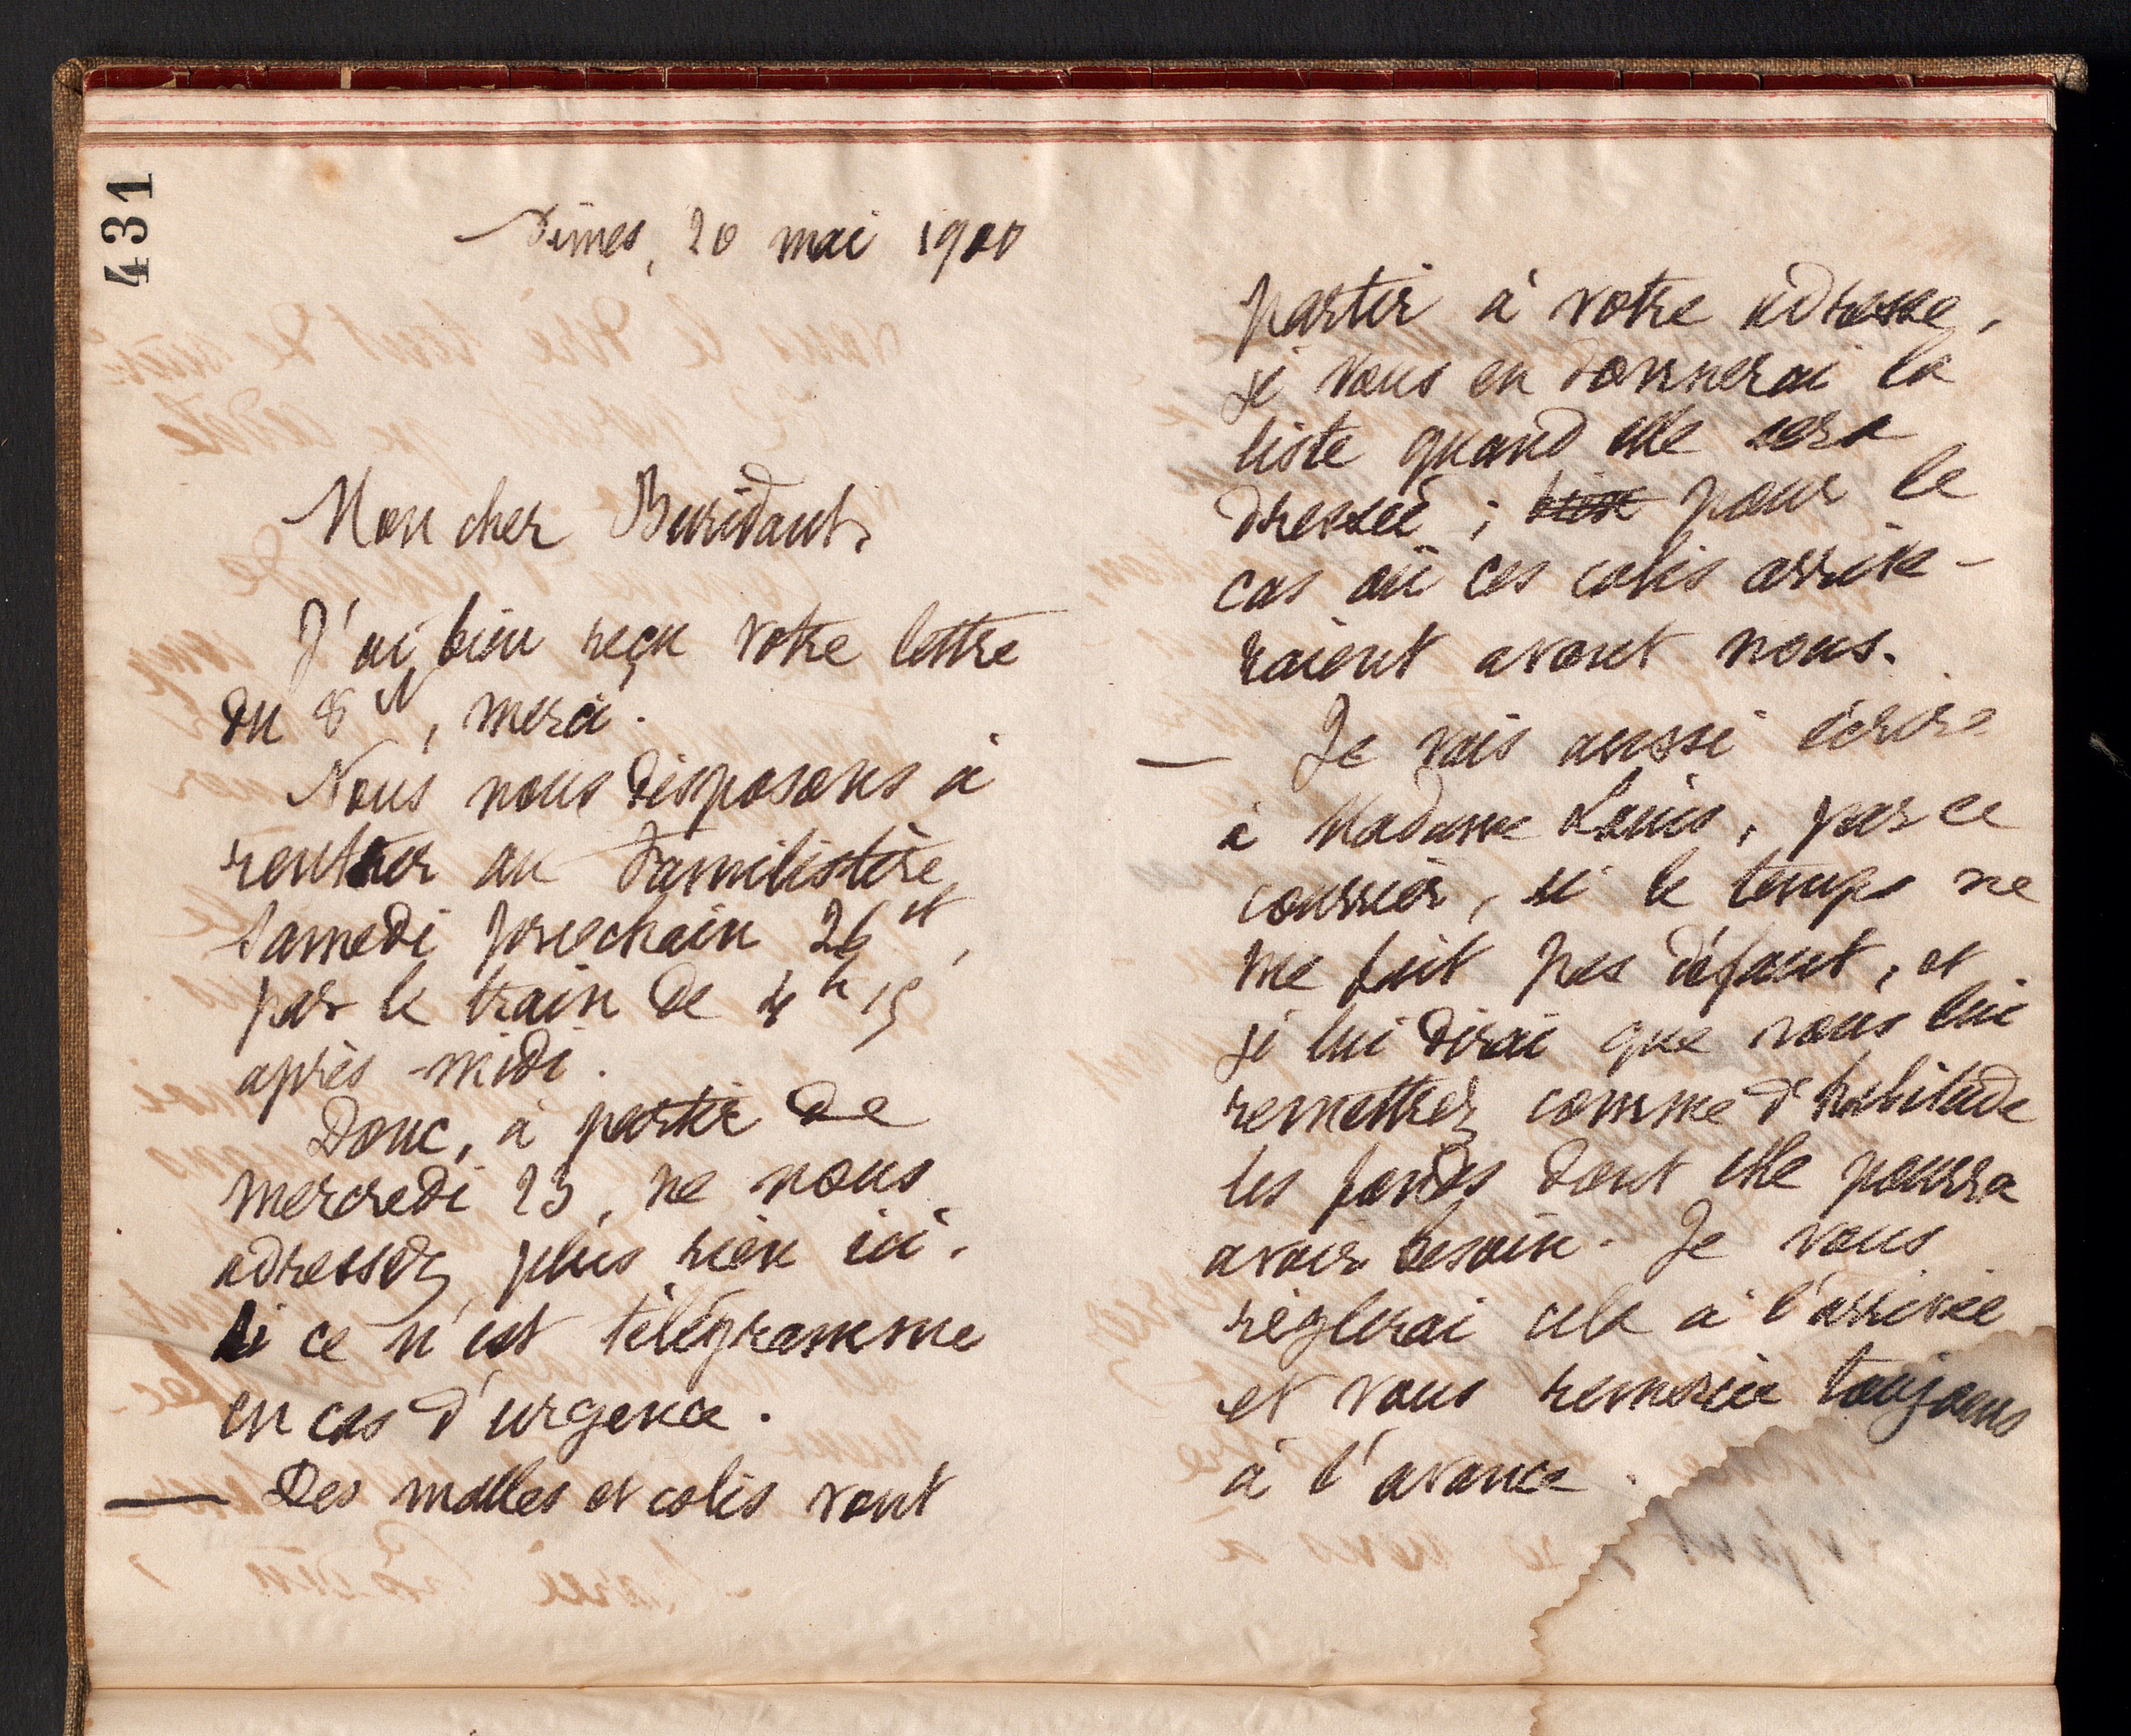 431
Nîmes, 20 mai 1900
Mon cher Buridant,
J'ai bien reçu votre lettre
du 8 ct, merci.
Nous nous disposons à
rentrer au Familistère
samedi prochain 26 ct,
par le train de 4h 15
après-midi.
Donc, à partir de
mercredi 23, ne nous
adressez plus rien ici.
si ce n'est télégramme
en cas d'urgence.
— Des malles et colis vont
partir à votre adresse,
je vous en donnerai la
liste quand elle sera
dressée ; pour le
cas où ces colis arrive-
raient avant nous.
— Je vais aussi écrire
à Madame Louis, par ce
courrier, si le temps ne
me fait pas défaut, et
je lui dirai que vous lui
remettrez comme d'habitude
les fonds dont elle pourra
avoir besoin. Je vous
règlerai cela à l'arrivée
et vous remercie toujours
à l'avance.